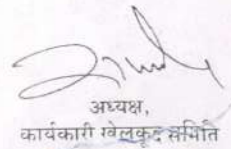 अध्यक्ष,
कार्यकारी खेलकूद समिति